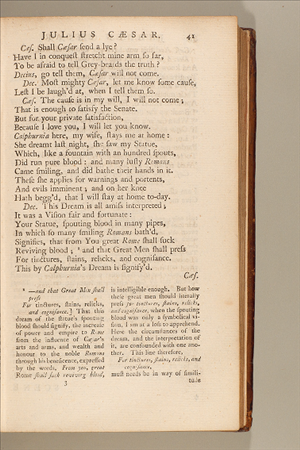 JULIUS CÆSAR. 41
Cæs. Shall Cæsar send a lye?
Have I in conquest stretcht mine arm so far,
To be afraid to tell Grey-beards the truth?
Decius, go tell them, Cæsar will not come.
Dec. Most mighty Cæsar, let me know some cause,
Lest I be laugh'd at, when I tell them so.
Cæs. The cause is in my will, I will not come;
That is enough to satisfy the Senate.
But for your private satisfaction,
Because I love you, I will let you know.
Calphurnia here, my wife, stays me at home:
She dreamt last night, she saw my Statue,
Which, like a fountain with an hundred spouts,
Did run pure blood: and many lusty Romans
Came smiling, and did bathe their hands in it.
These she applies for warnings and portents,
And evils imminent; and on her knee
Hath begg'd, that I will stay at home to-day.
Dec. This Dream is all amiss interpreted;
It was a Vision fair and fortunate:
Your Statue, spouting blood in many pipes,
In which so many smiling Romans bath'd,
Signifies, that from You great Rome shall suck
Reviving blood; and that Great Men shall press
For tinctures, stains, relicks, and cognisance.
This by Calphurnia's Dream is signify'd.
Cæs.
—and that Great Men shall
press
For tinctures, stains, relicks,
and cognisance.] That this
dream of the statue's spouting
blood should signify, the increase
of power and empire to Rome
from the influence of Cæsar's
arts and arms, and wealth and
honour to the noble Romans
through his beneficence, expressed
by the words, From you, great
Rome shall suck reviving blood,
is intelligible enough. But how
these great men should literally
press for tinctures, stains, relicks,
and cognisance, when the spouting
blood was only a symbolical vision,
I am at a loss to apprehend.
Here the circumstances of the
dream, and the interpretation of
it, are confounded with one another.
This line therefore,
For tinctures, stains, relicks, and
cognisance,
must needs be in way of simili-
3